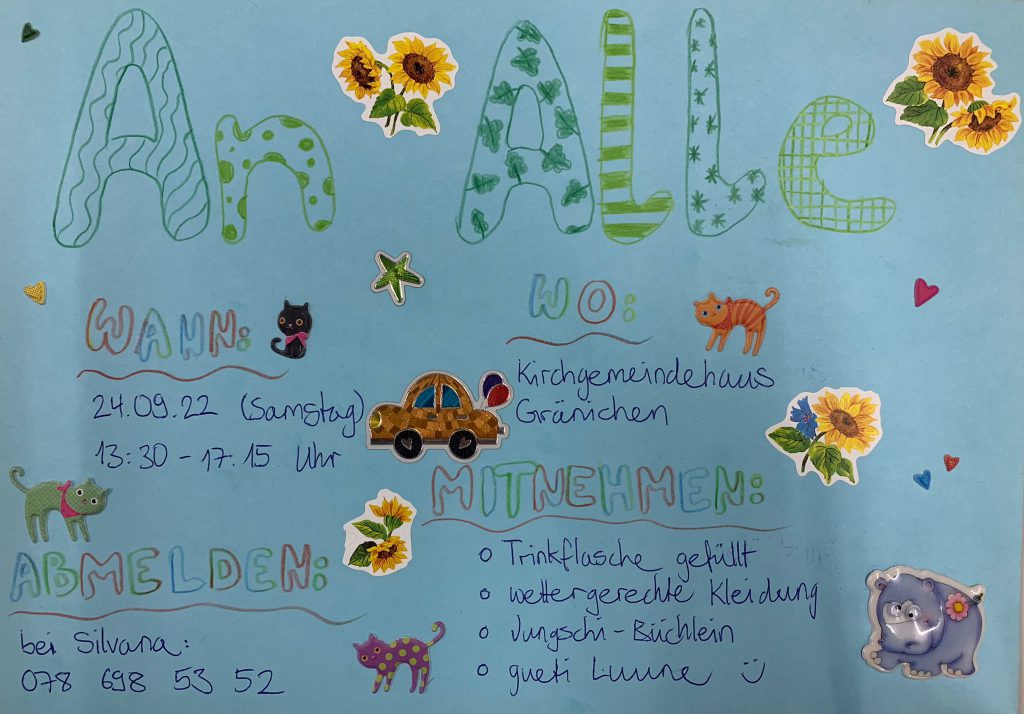 An Alle
WANN:
24.09.22 (Samstag)
13:30 - 17.15 Uhr
WO:
Kirchgemeindehaus
Gränichen
MITNEHMEN:
o Trinkflasche gefüllt
o wettergerechte Kleidung
o Jungschi-Büchlein
o gueti Luune :)
ABMELDEN:
bei Silvana:
078 698 53 52